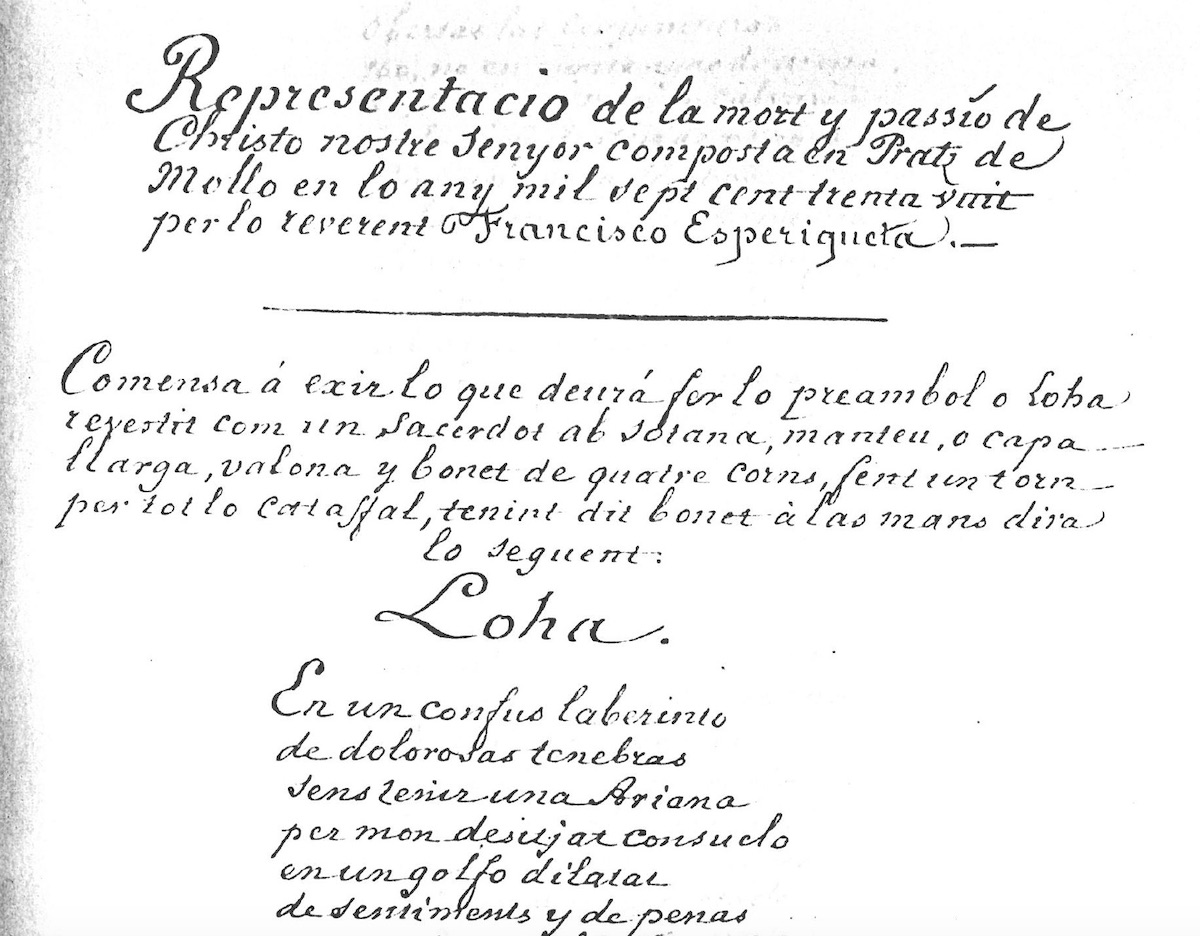 Representacio de la mort y passio de
Christo nostre senyor composta en Pratz de
Mollo en lo any mil sept cent trenta vuit
per lo reverent Francisco Esperiqueta.—
Comensa á exir lo que deurá fer lo preambol o Loha
revestit com un sacerdot ab sotana, manteu, o capa
llarga, valona y bonet de quatre corns, fent un torn
per tot lo cataffal, tenint dit bonet à las mans dira
lo seguent:
Loha.
En un confus laberinto
de dolorosas tenebras
sens tenir una Ariana
per mon desitjat consuelo
en un golfo dilatat
de sentiments y de penas